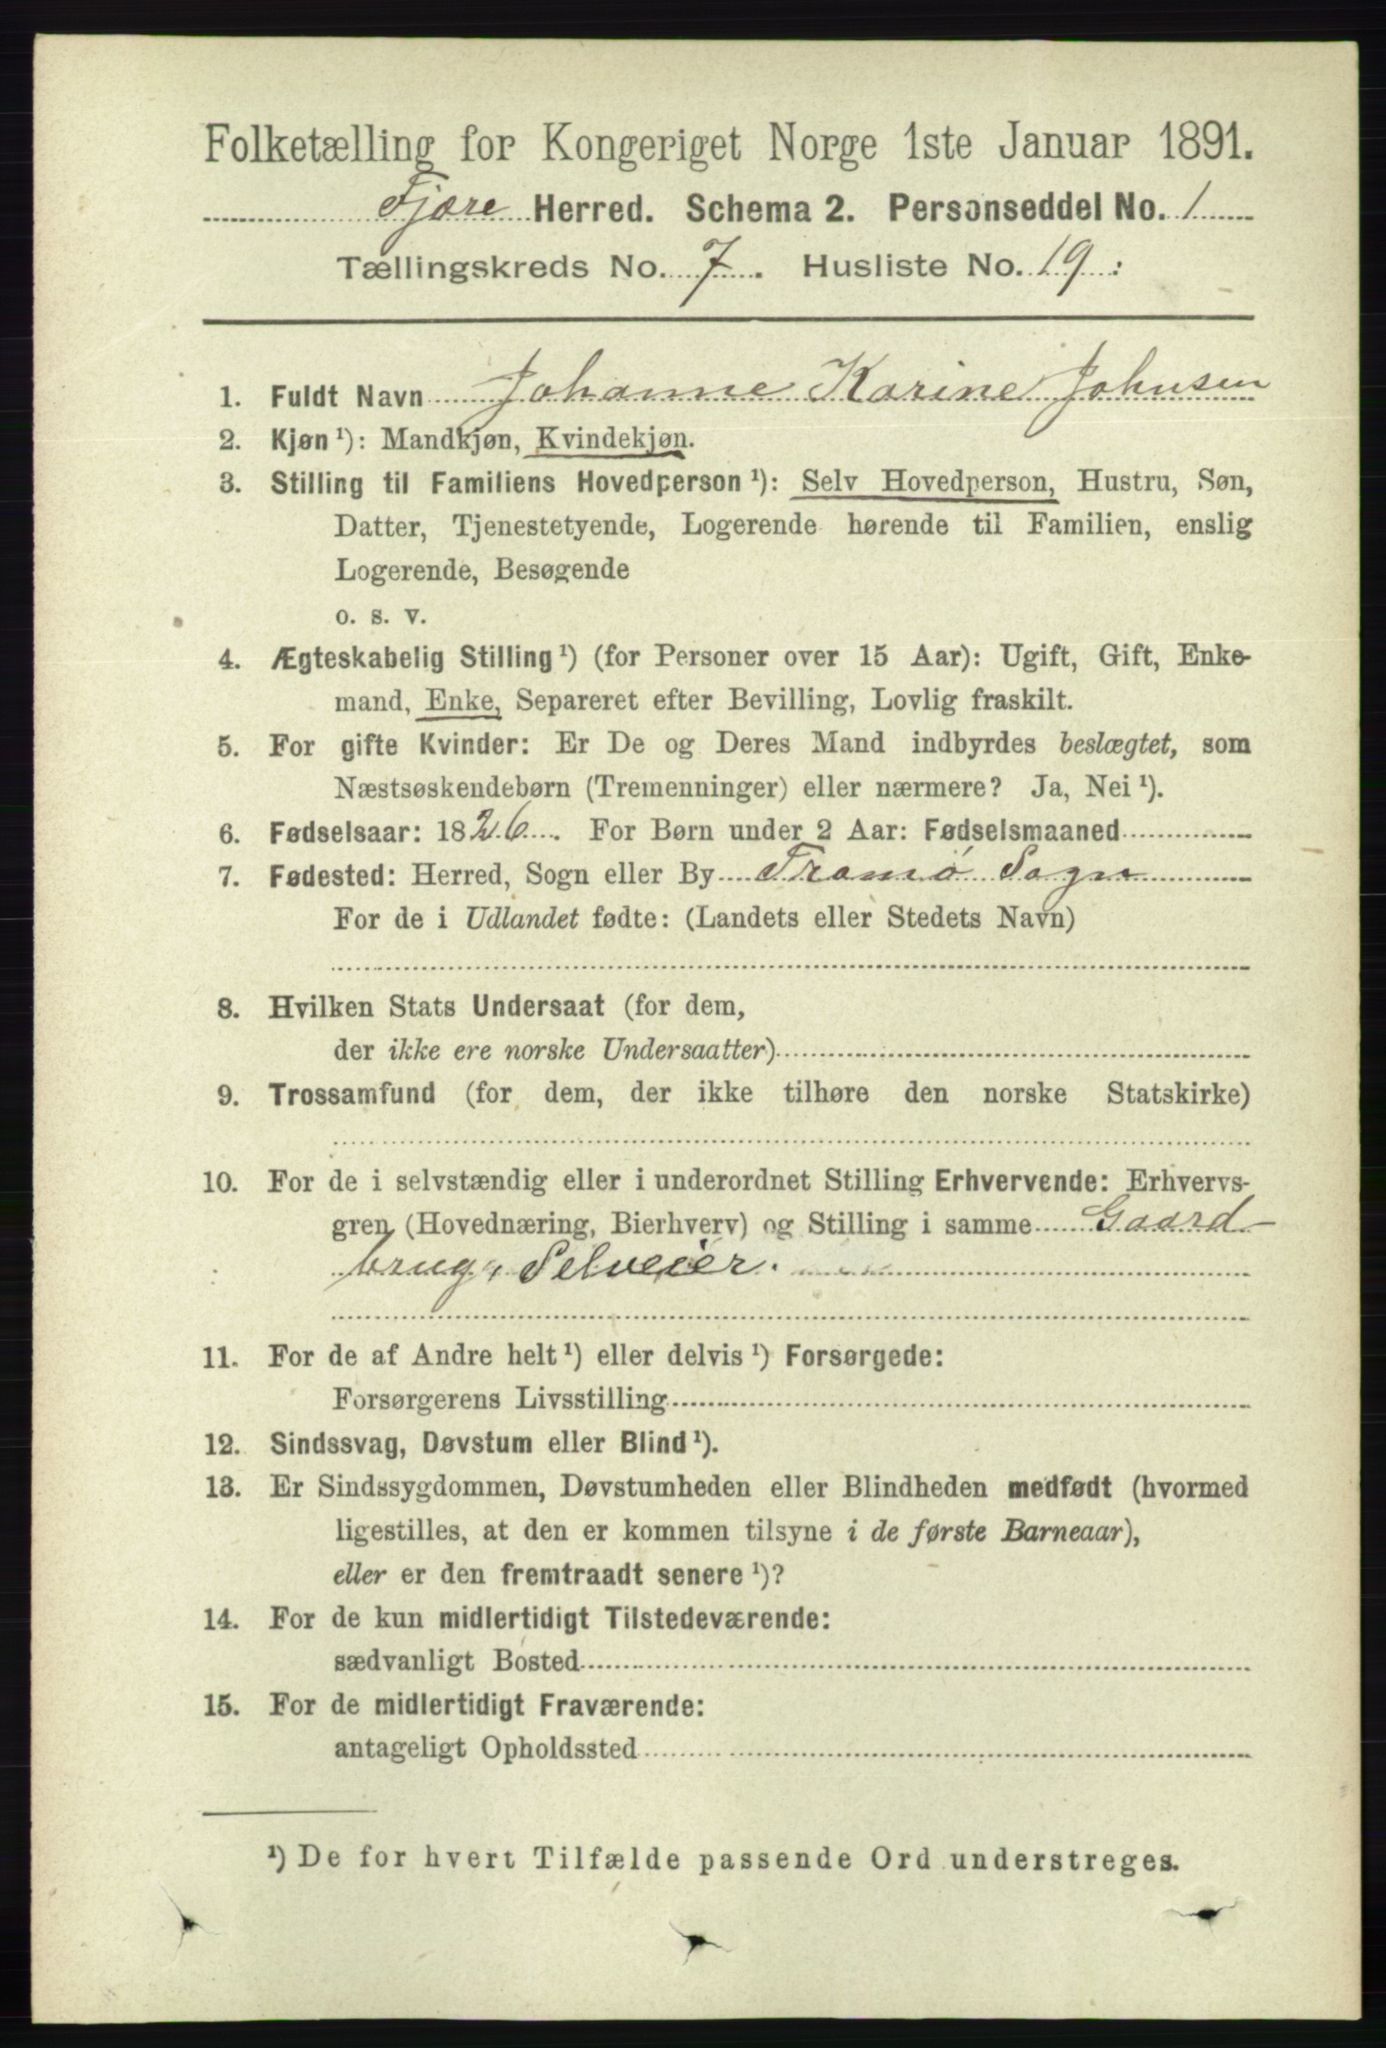 Folketælling for Kongeriget Norge 1ste Januar 1891.
Fjære Herred. Schema 2. Personseddel No. 1
Tællingskreds No. 7. Husliste No. 19:
1. Fuldt Navn Johanne Karine Johnsen
2. Kjøn ¹): Mandkjøn, Kvindekjøn.
3. Stilling til Familiens Hovedperson ¹): Selv Hovedperson, Hustru, Søn,
Datter, Tjenestetyende, Logerende hørende til Familien, enslig
Logerende, Besøgende
o. s. v.
4. Ægteskabelig Stilling ¹) (for Personer over 15 Aar): Ugift, Gift, Enke-
mand, Enke, Separeret efter Bevilling, Lovlig fraskilt.
5. For gifte Kvinder: Er De og Deres Mand indbyrdes beslægtet, som
Næstsøskendebørn (Tremenninger) eller nærmere? Ja, Nei ¹).
6. Fødselsaar: 1826. For Børn under 2 Aar: Fødselsmaaned
7. Fødested: Herred, Sogn eller By Tromø Sogn
For de i Udlandet fødte: (Landets eller Stedets Navn)
8. Hvilken Stats Undersaat (for dem,
der ikke ere norske Undersaatter)
9. Trossamfund (for dem, der ikke tilhøre den norske Statskirke)
10. For de i selvstændig eller i underordnet Stilling Erhvervende: Erhvervs-
gren (Hovednæring, Bierhverv) og Stilling i samme Gaard-
brug, Selveier.
11. For de af Andre helt ¹) eller delvis ¹) Forsørgede:
Forsørgerens Livsstilling
12. Sindssvag, Døvstum eller Blind ¹).
13. Er Sindssygdommen, Døvstumheden eller Blindheden medfødt (hvormed
ligestilles, at den er kommen tilsyne i de første Barneaar),
eller er den fremtraadt senere ¹)?
14. For de kun midlertidigt Tilstedeværende:
sædvanligt Bosted
15. For de midlertidigt Fraværende:
antageligt Opholdssted
¹) De for hvert Tilfælde passende Ord understreges.